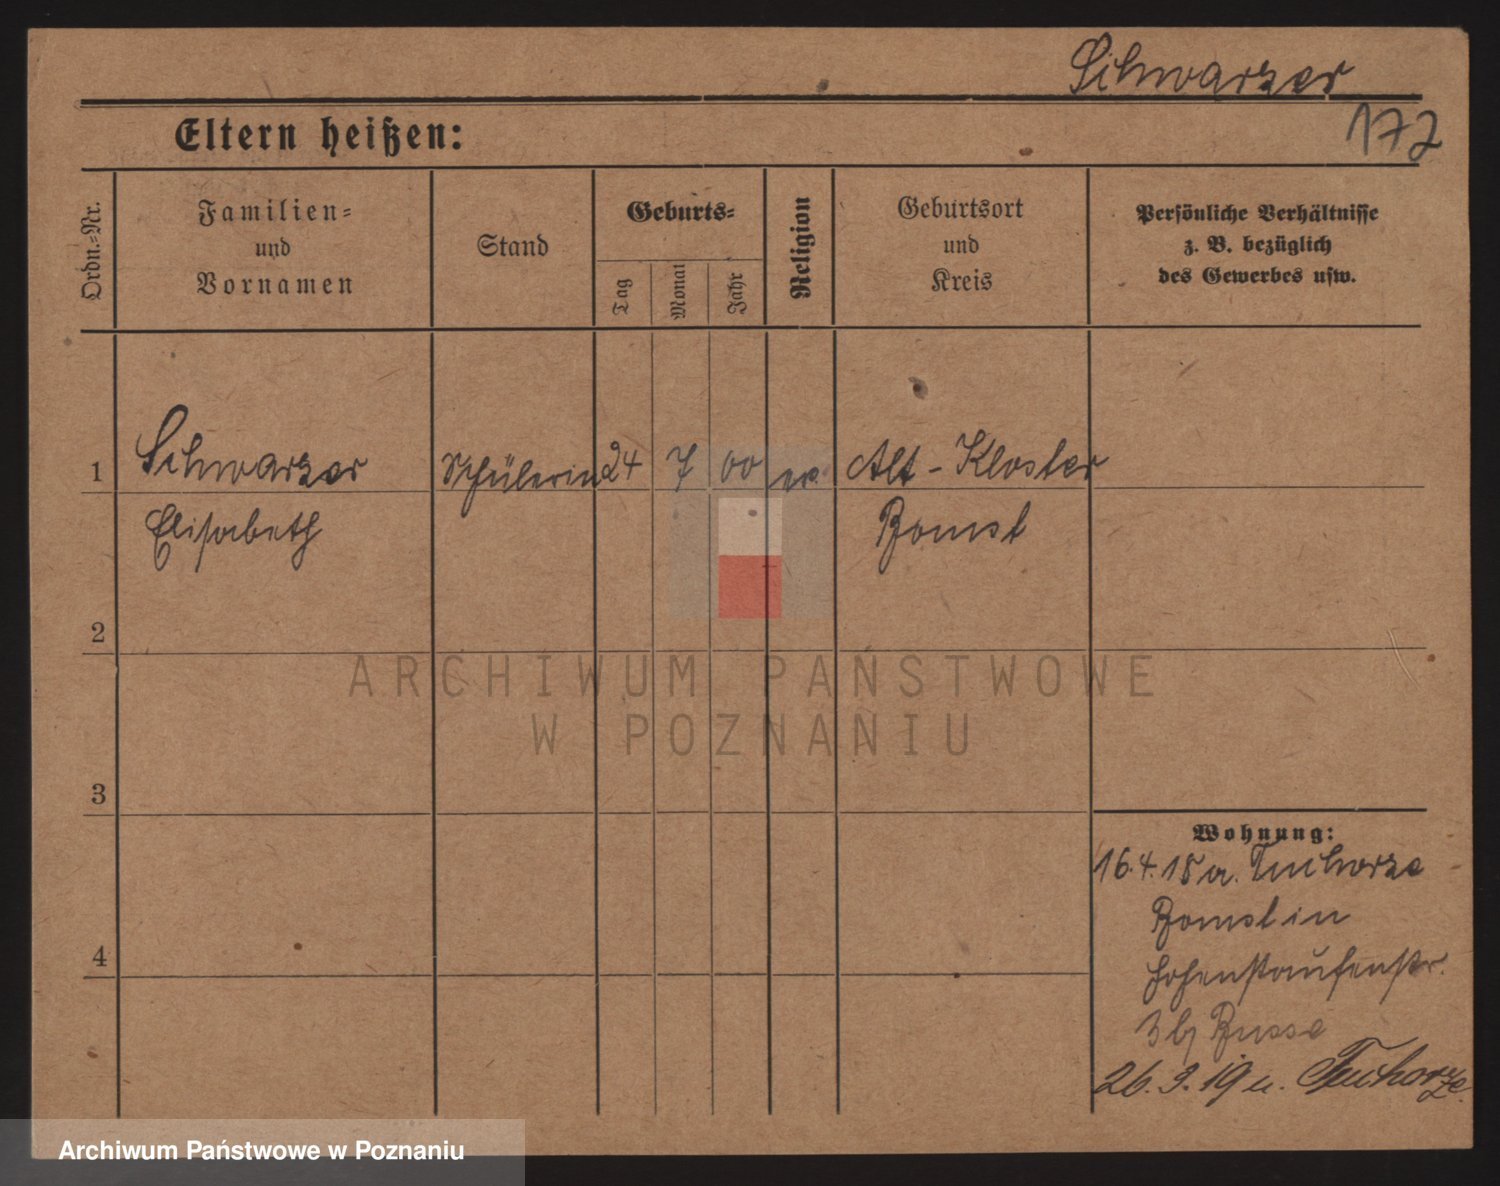 Schwarzer
172
Eltern heißen:
Ordn.-Nr.
Familien-
und
Vornamen
Stand
Geburts-
Tag
Monat
Jahr
Religion
Geburtsort
und
Kreis
Persönliche Verhältnisse
z. B. bezüglich
des Gewerbes usw.
1
Schwarzer
Schülerin
24
7
00
ev.
Alt-Kloster
Elisabeth
Bomst
2
3
4
Wohnung:
16.4.18 a. Tuchorze
Bomst in
Hohenstaufenstr.
3 b/ Busse
26.3.19 n. Tuchorze.
ARCHIWUM PAŃSTWOWE
W POZNANIU
Archiwum Państwowe w Poznaniu